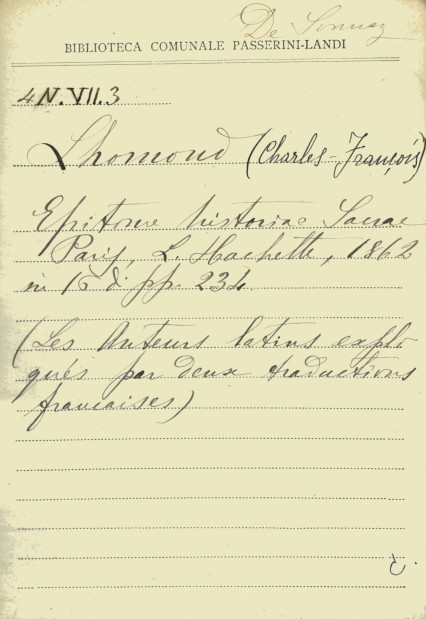 De Sonnaz
BIBLIOTECA COMUNALE PASSERINI-LANDI
4N.VII.3
Lhomond (Charles-François)
Epitome historiae Sacrae
Paris, L. Hachette, 1862
in 16° di pp. 234
(Les Auteurs latins expli
qués par deux traductions
françaises)